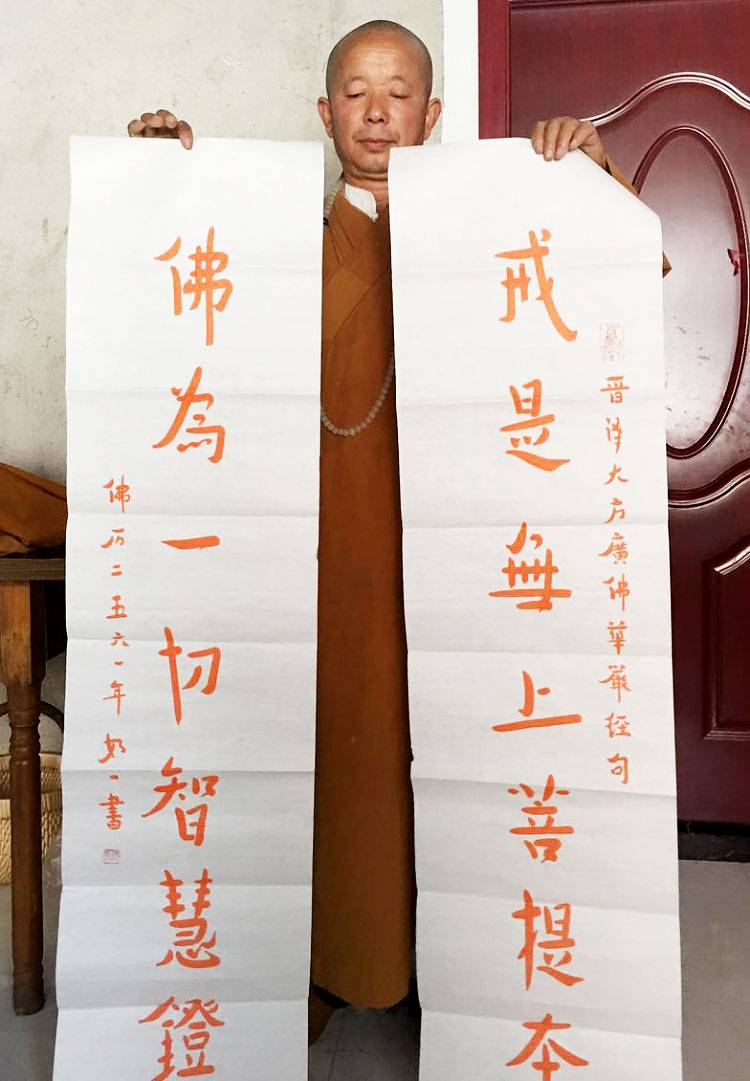 晋譯大方廣佛華嚴経句
戒是無上菩提本
佛為一切智慧鐙
佛历二五六一年如一書